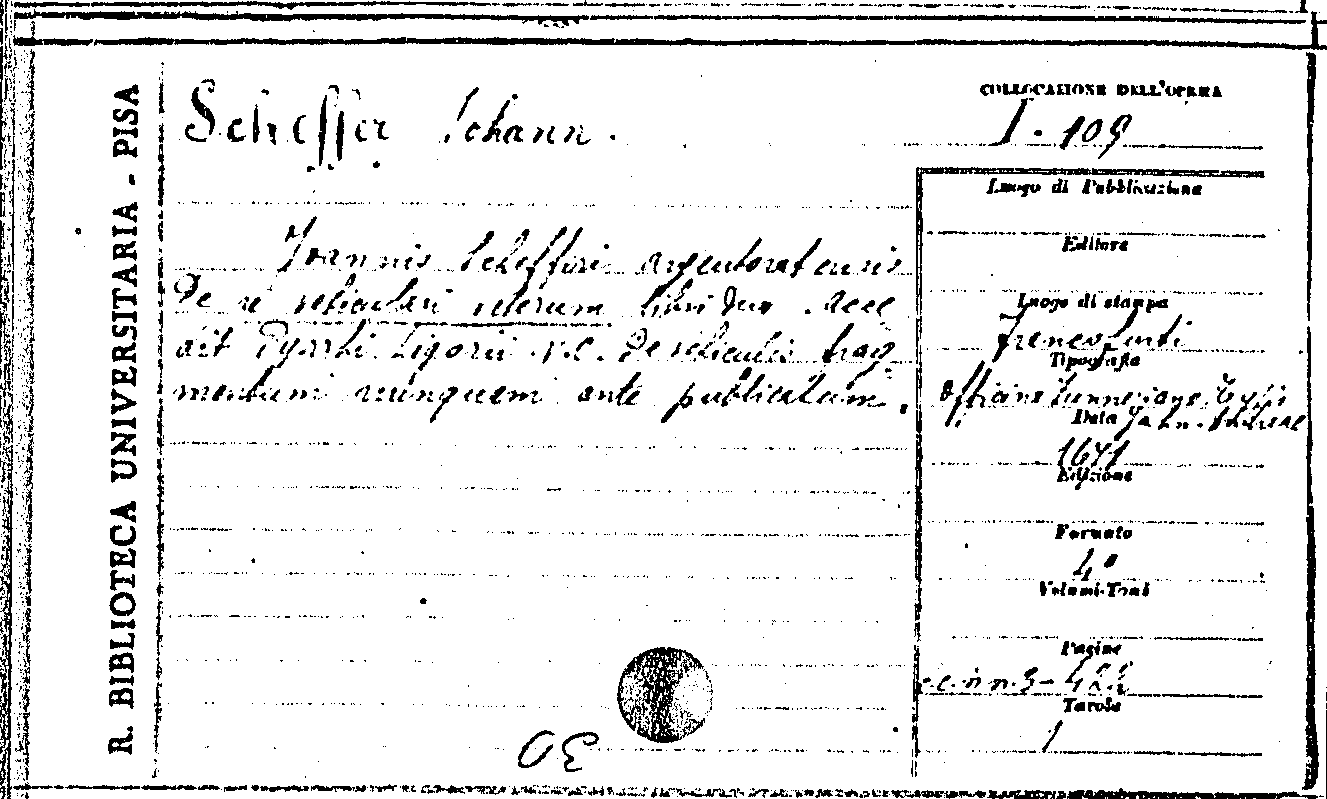 R. BIBLIOTECA UNIVERSITARIA - PISA
Scheffer Johann.
COLLOCAZIONE DELL'OPERA
I. 109
Joannis Schefferi argentoratensis
De re vehiculari veterum libri duo Acce
dit Pyrrhi Ligorii v.c. De vehiculis frag
mentum nunquam ante publicatum.
Luogo di Pubblicazione
Editore
Luogo di stampa
Francofurti
Tipografia
Officina Zunneriana, Typis
Data
Joh. Andreae
1671
Edizione
Formato
4°
Volumi-Tomi
Pagine
Tavole
1
30